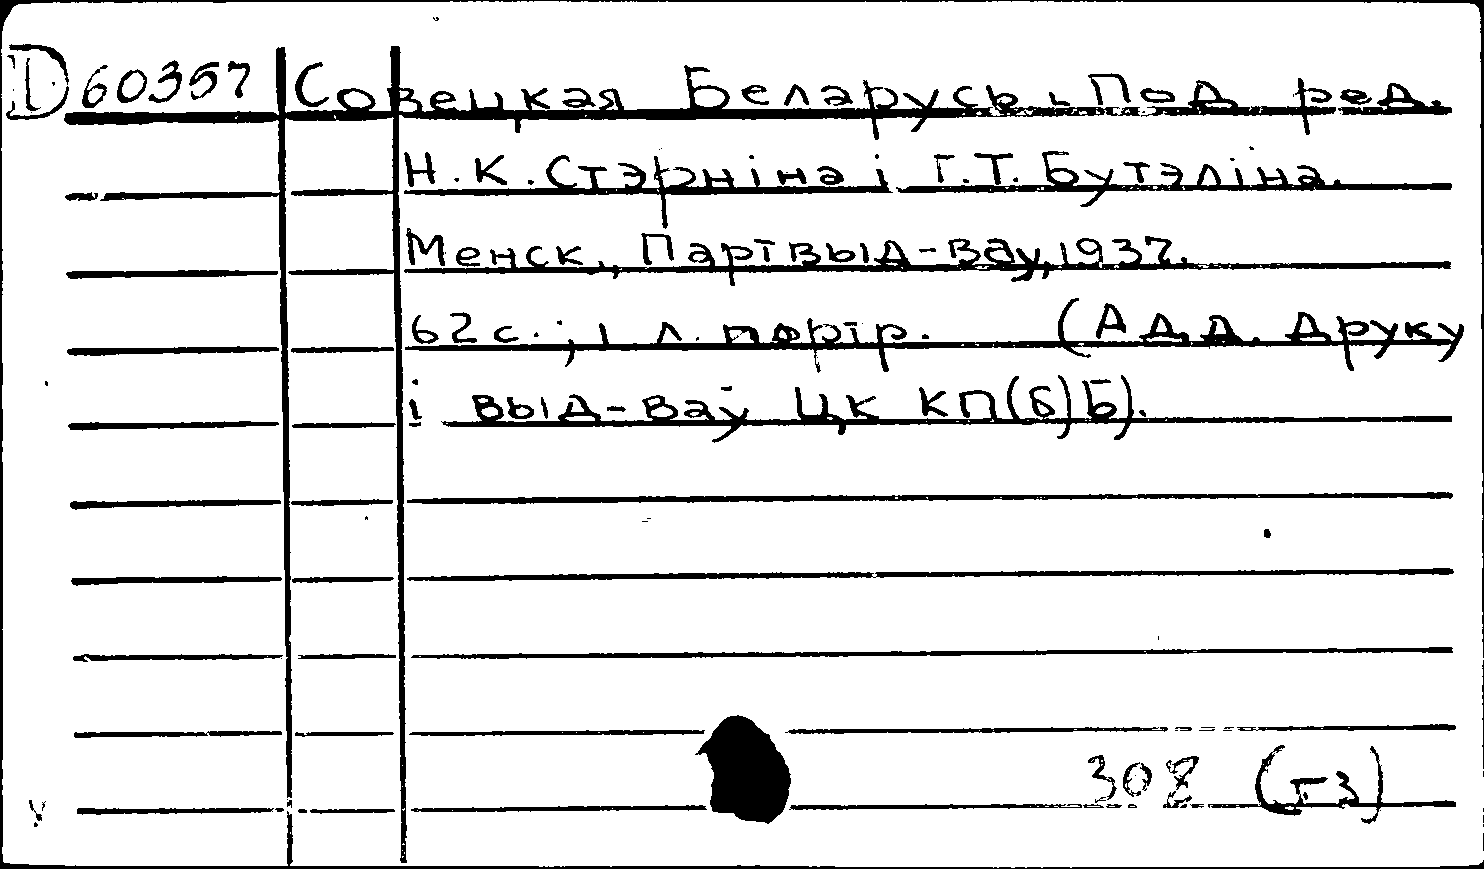 D 60357 Совецкая Беларусь. Под ред.
Н.К.Стэрніна і Г.Т.Буталіна.
Менск., Партвыд-ваў, 1937.
62 с.; 1 л. портр. (Адд. друку
і выд-ваў ЦК КП(б)Б).
308 (53)